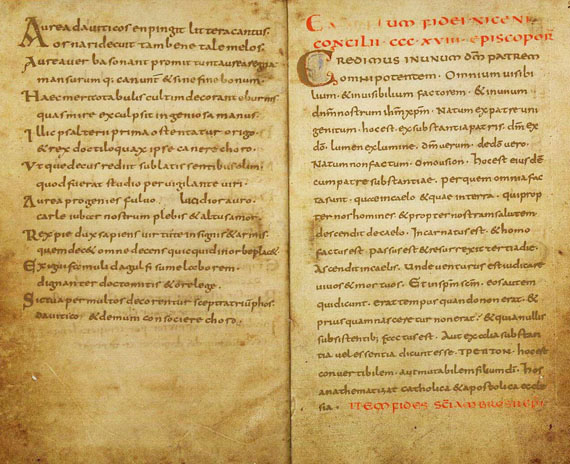 Aurea daviticos en pingit littera cantus.
Ornari decuit tam bene tale melos.
Aurea verba sonant promittunt aurea regna.
mansurumq; canunt & sine fine bonum.
Haec merito tabulis cultim decorantur eburnis
quas mire exculpsit ingeniosa manus.
Illic psalterii prima ostentatur origo
& rex doctiloquax ipse canere choro.
Utque decus rediit sublatis sentibus olim
quod fuerat studio pervigilante viri
Aurea progenies fulvo lucidior auro.
carle iubar nostrum plebis & altus amor
Rex pie dux sapiens virtute insignis & armis
quem dec& omne decens quicquid in orbe plac&
Exigui famuli dagulfi sume laborem.
dignanter docto mitis & ore lege.
Sic tua per multos decorentur sceptra triumphos.
davitico & demum consociere choro.
FIDEI NICENI
CONCILII CCC XVIII EPISCOPOR
CREDIMUS IN UNUM DM PATREM
OMNIPOTENTEM. Omnium visibi
lium. & invisibilium factorem. & in unum
dnm nostrum ihm xpm. Natum ex patre uni
genitum. hoc est. ex substantia patris. dm ex
do. lumen ex lumine. dm verum. de do vero.
Natum non factum. Omousion. hoc est eiusdem
cum patre substantiae. per quem omnia fac
ta sunt. quae in caelo & quae in terra. qui prop
ter nos homines & propter nostram salutem
descendit de caelo. Incarnatus est. & homo
factus est. passus est & resurrexit tertia die.
Ascendit in caelis. Unde venturus est iudicare
vivos & mortuos. Et in spm scm. eos autem
qui dicunt. erat tempus quando non erat. &
prius quam nasceretur non erat. & quia nullis
subsistentib; factus est. Aut ex alia substan
tia vel essentia dicunt esse. ΤΡΕΠΤΟΝ. hoc est
convertibilem. aut mutabilem filium di. Hos
anathematizat catholica & apostolica eccle
sia. ITEM FIDES SCI AMBROSII EPI